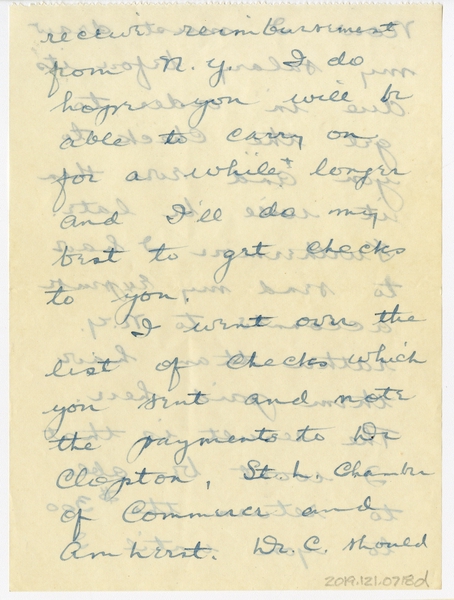 receive reimbursement
from N.Y. I do
hope you will be
able to carry on
for a while longer
and I'll do my
best to get checks
to you.
I went over the
list of checks which
you sent and note
the payments to Dr
Clopton, St. L. Chamber
of Commerce and
Amherst. Dr. C. should
2019.121.0718d